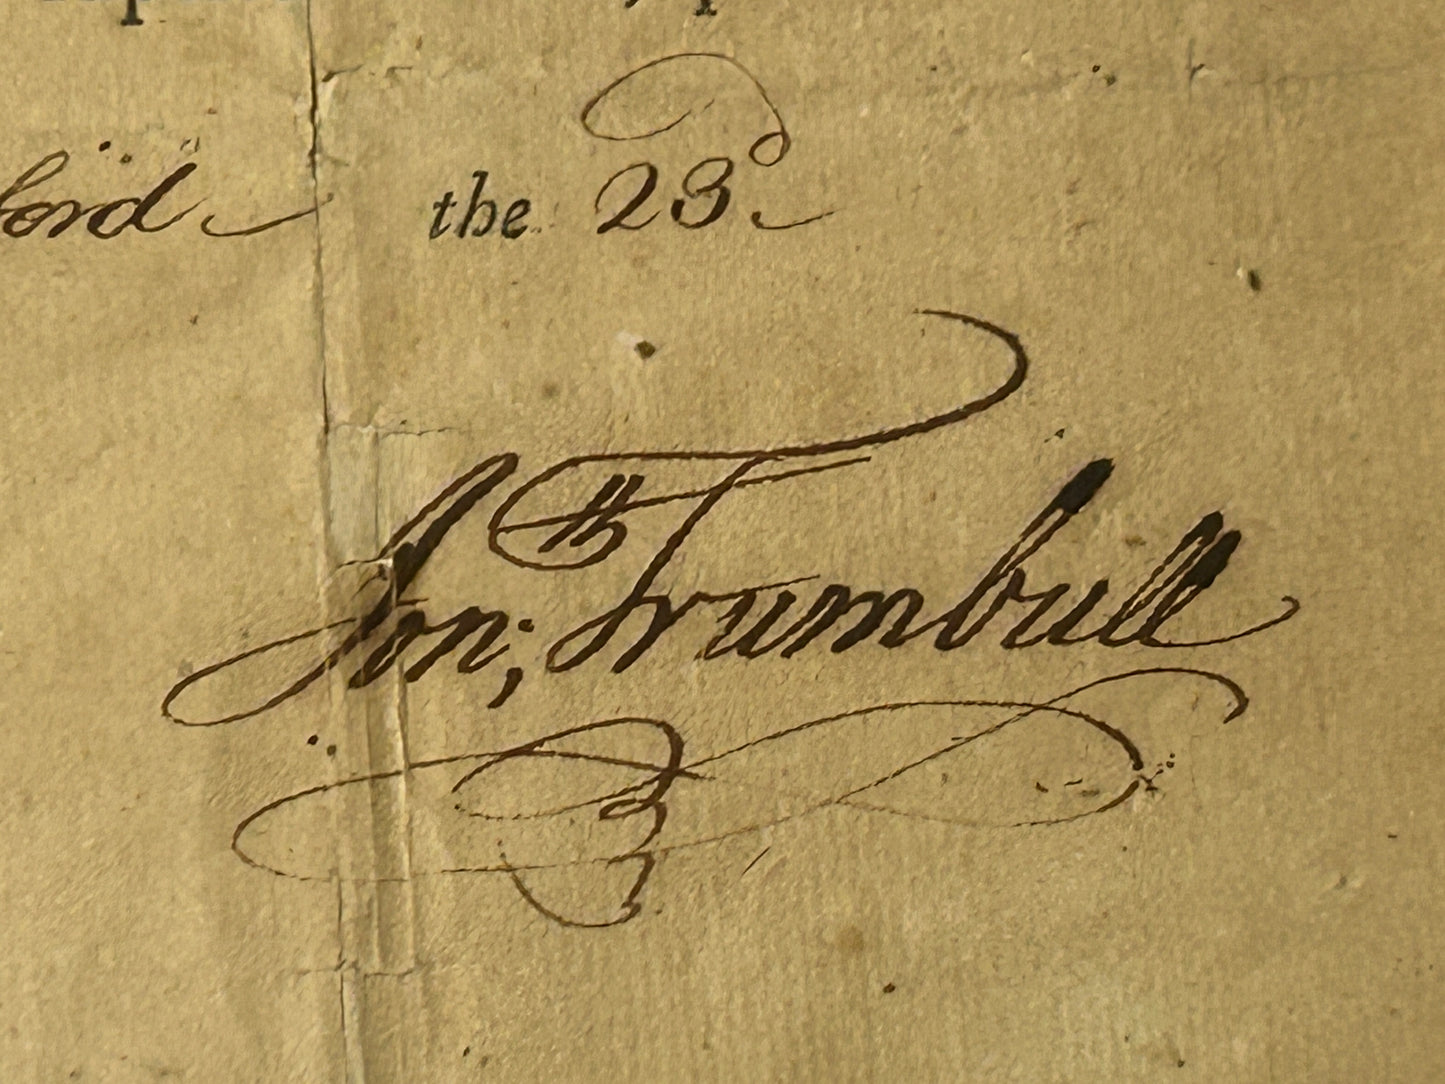 ford the 23d
Jonth; Trumbull